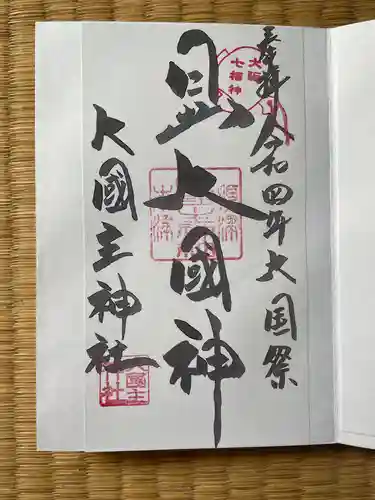 奉拝 令和四年 大国祭
大阪
七福神
日出大國神
大國主神社